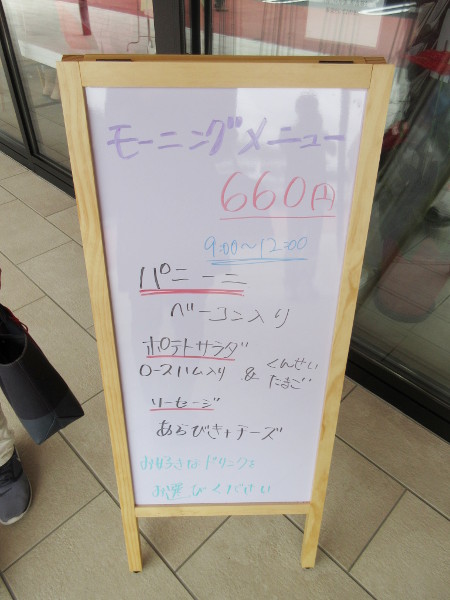 モーニングメニュー
660円
9:00〜12:00
パニーニ
ベーコン入り
ポテトサラダ
ロースハム入り & くんせい
たまご
ソーセージ
あらびき+チーズ
お好きなドリンクを
お選びください